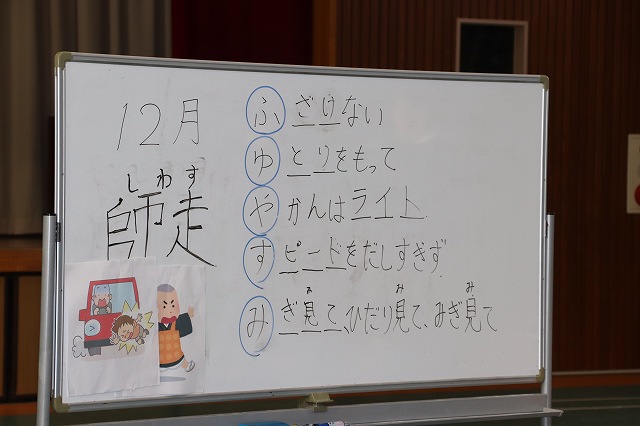 12月
しわす
師走
ふざけない
ゆとりをもって
やかんはライト
すピードをだしすぎず
みぎ見て、ひだり見て、みぎ見て